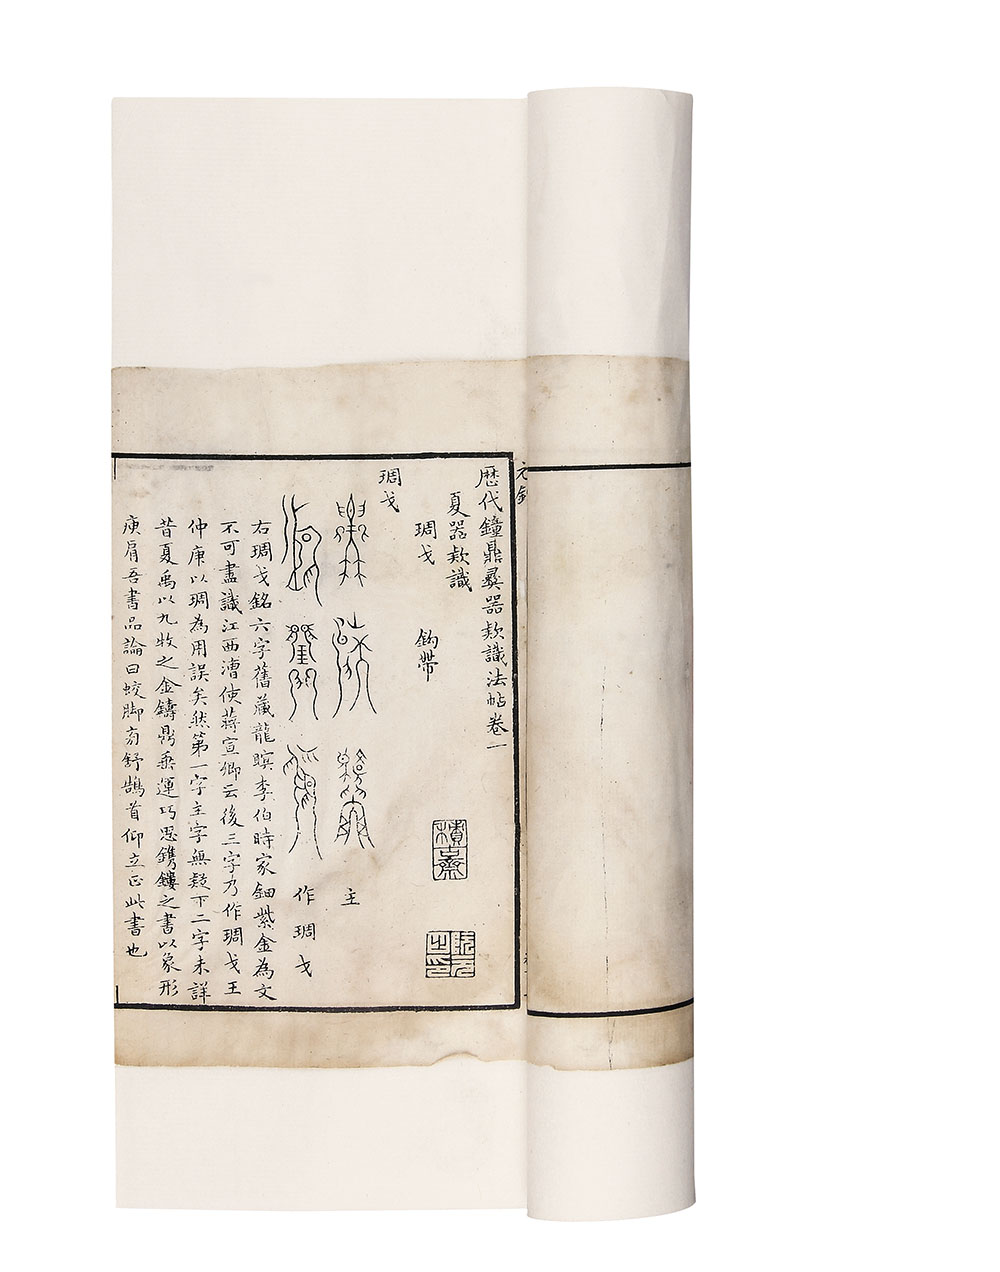 歷代鐘鼎彝器款識法帖卷一
夏器款識
琱戈
鈎帶
琱戈
主
作琱戈
右琱戈銘六字舊藏龍眠李伯時家鈿紫金為文
不可盡識江西漕使蔣宣卿云後三字乃作琱戈王
仲庚以琱為用誤矣然第一字主字無疑下二字未詳
昔夏禹以九牧之金鑄鼎乘運巧思鐫鏤之書以象形
庾肩吾書品論曰蛟脚旁舒鵠首仰立正此書也
積古齋
阮元之印